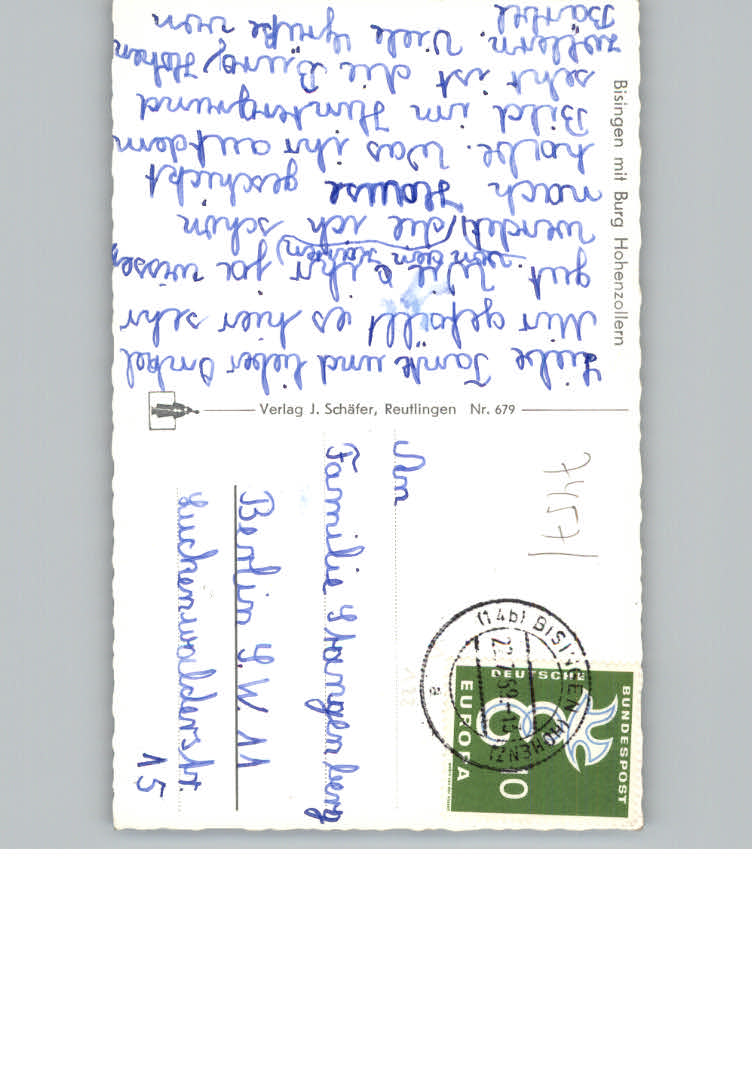 Bisingen mit Burg Hohenzollern
Liebe Tante und lieber Onkel
Mir gefällt es hier sehr
gut. Wie ihr ja wisset
von den Karten,
werdet, die ich schon
nach Hause geschickt
habe. Was ihr auf dem
Bild im Hintergrund
seht ist die Bürg, Hohen
zollern. Viele Grüße von
Bärbel
Verlag J. Schäfer, Reutlingen Nr. 679
An
Familie Stangenberg
Berlin S.W 11
Luckenwalderstr.
15
7457
(14b) BISINGEN (HOHENZ)
a
DEUTSCHE
BUNDESPOST
EUROPA
10